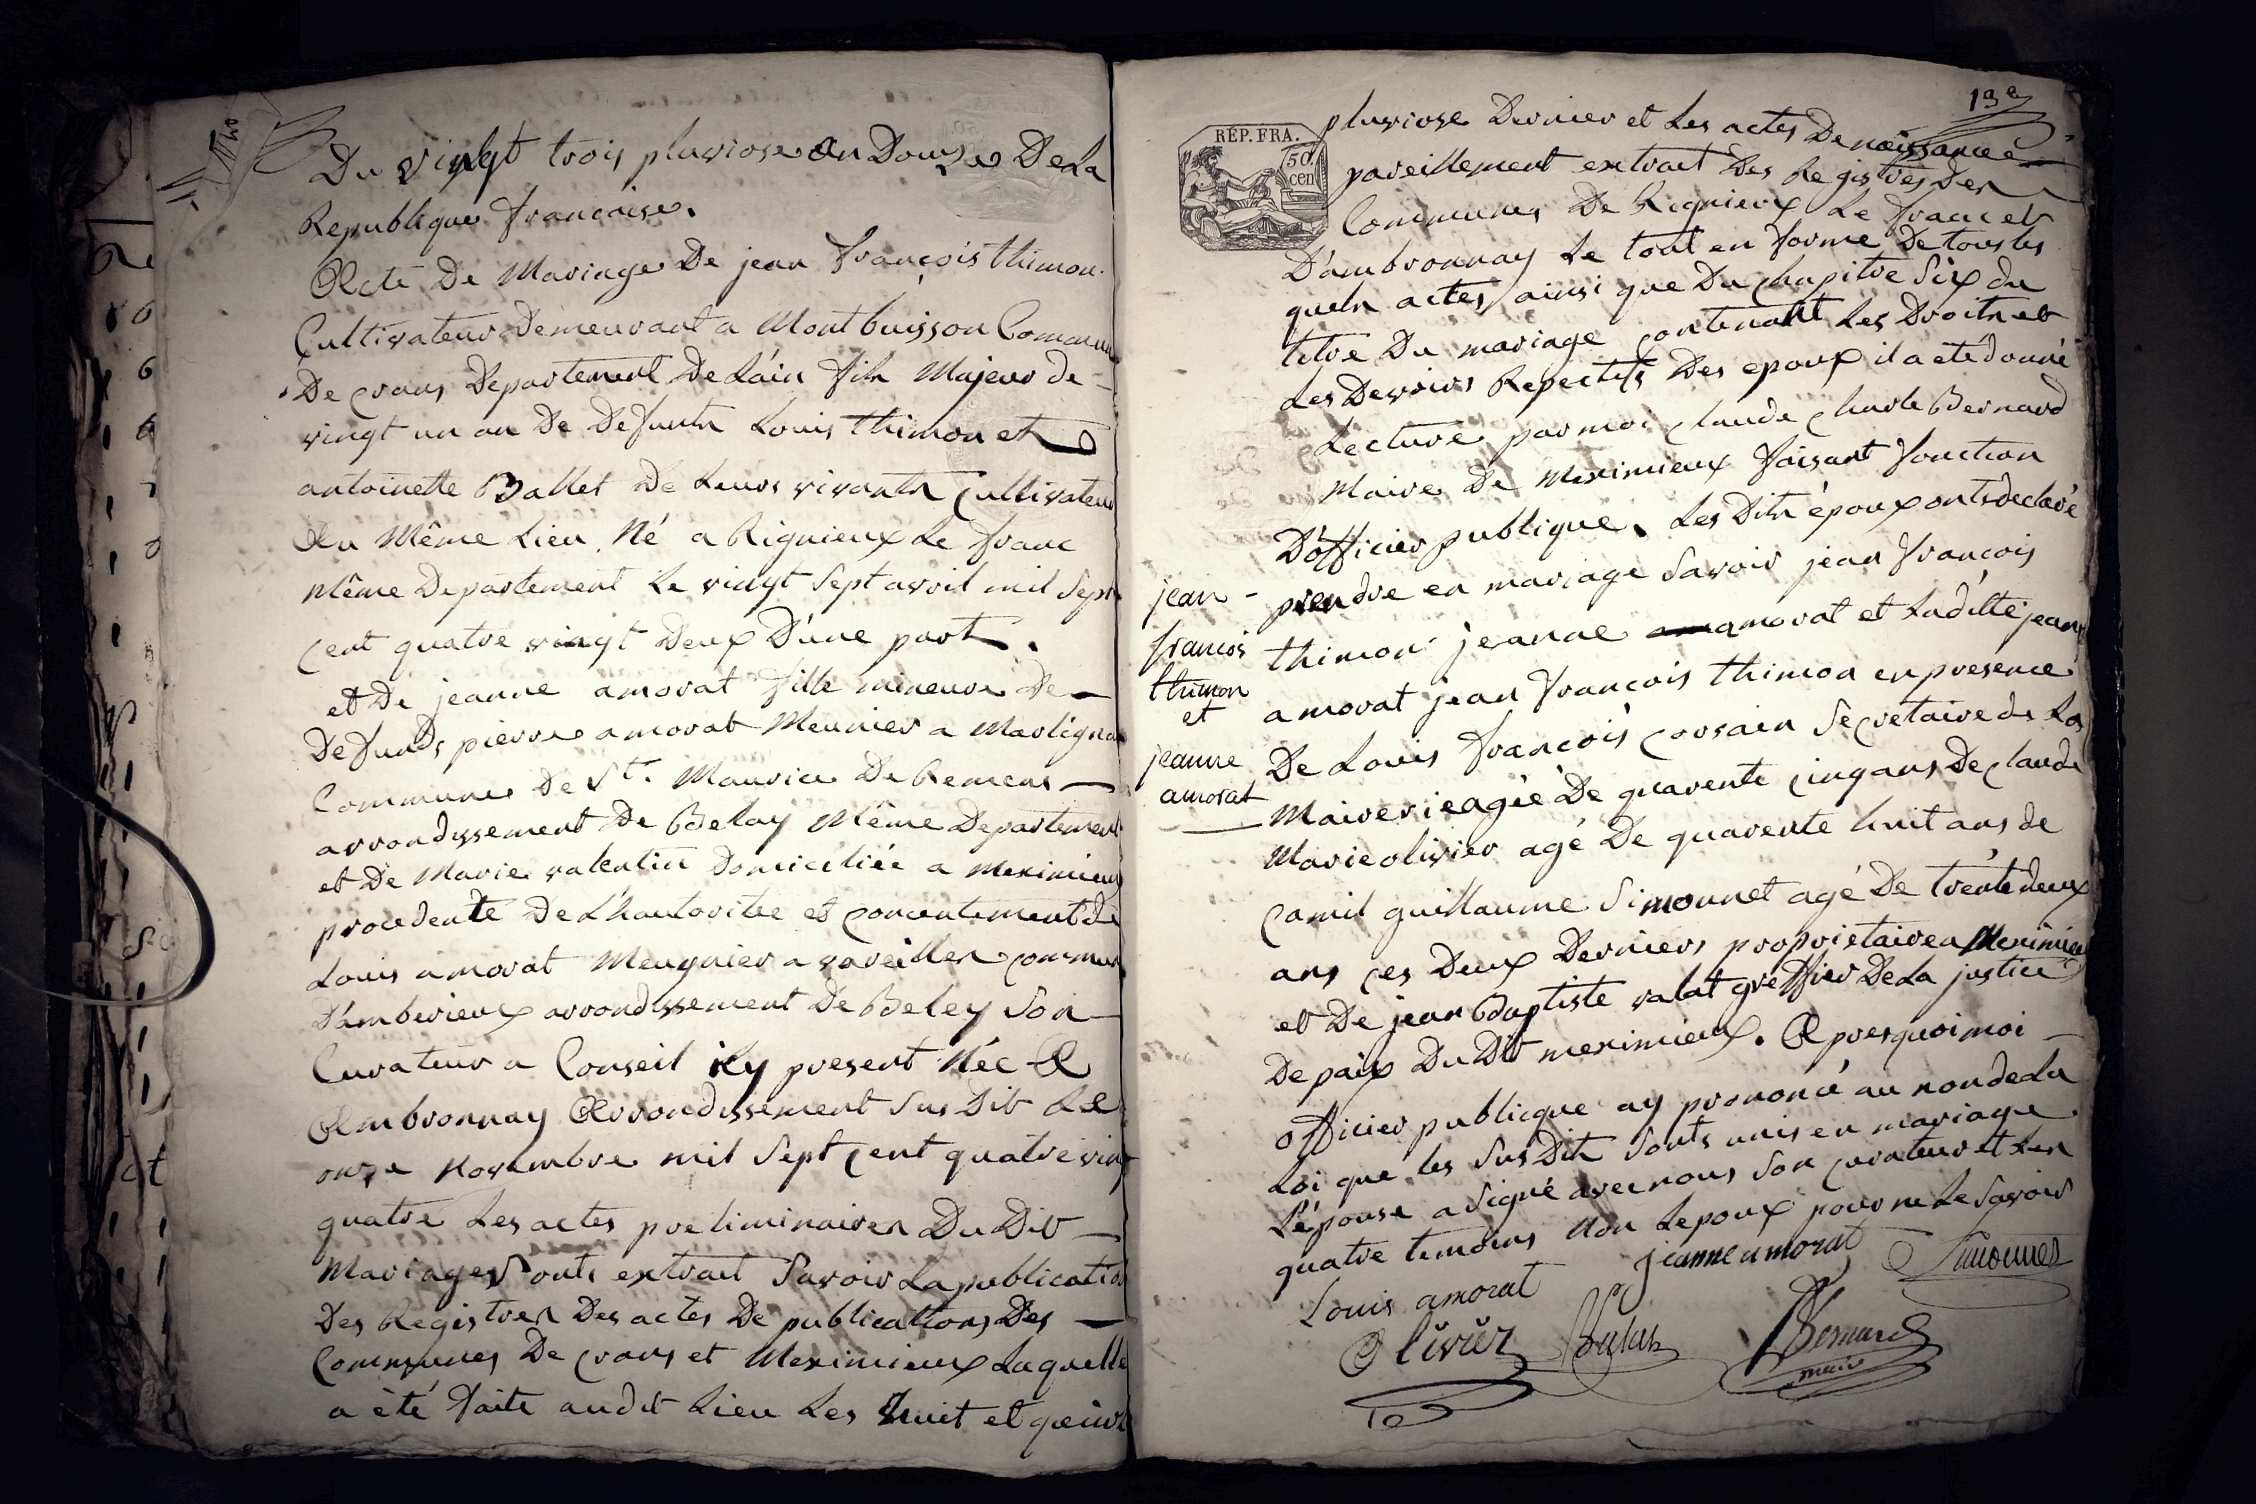 Du vingt trois pluviose an Douze De La
Republique francaise.
Acte De Mariage De jean françois thimon
Cultivateur Demeurant a Montbuisson Commune
De crans Departement De L'ain fils Majeur de
vingt un an De Defunts Louis thimon et
antoinette Ballet De Leurs vivants Cultivateurs
Au Même Lieu Né a Rignieux Le franc
Même Departement Le vingt Sept avril mil Sept
Cent quatre vingt Deux D'une part.
et De jeanne amorat fille mineure De
Defunds pierre amorat Meunier a Martignat
Commune De St. Maurice De Remens
arrondissement De Belay Même Departement
et De Marie valentin Domiciliée a Meximieux
procedente De L'hautoritée et concentement de
Louis amorat Meugnier a vareilles commune
D'amberieux arrondissement De Beley Son
Curateur a Conseil icy present Née A
Ambronnay Arrondissement Sus Dit Le
onze novembre mil Sept Cent quatre vingt
quatre Les actes preliminaires Du Dit
Mariage Sonts extrait Savoir La publication
Des Registres Des actes De publications Des
Communes De crans et Meximieux Laquelle
a été faite audit Lieu Les huit et quinze
13e
RÉP. FRA.
50
cen
pluviose Dernier et Les actes De naissance
pareillement extrait Des Registres Des
Communes De Rignieux Le franc et
D'ambronnay Le tout en forme De tous les
quels actes ainsi que Du Chapitre Six du
titre Du mariage contenant Les Droits et
Les Devoirs Repectifs Des epoux il a eté donné
Lecture par moi claude charle Bernard
Maire De Meximieux faisant fonction
D'officier publique. Les Dits époux onts declaré
prendre en mariage Savoir jean françois
thimon jeanne amorat et Laditte jeanne
amorat jean françois thimon en presence
De Louis françois corsain Secretaire de La
Mairerie agée De quarente cinq ans De claude
Marie olivier agé De quarente huit ans de
Camil guillaume Simonnet agé De trente deux
ans ces Deux Derniers proprietaire a Meximieux
et De jean Baptiste valat greffier De La justice
De paix Du Dit meximieux. Apres quoi moi
officier publicque ay prononcé au nom de La
Loi que les Sus Dits Sonts unis en mariage
L'épouse a Signé avec nous Son curateur et Les
quatre temoins Non Lepoux pour ne Le Savoir
jean
francois
thimon
et
jeanne
amorat
jeanne amorat
Simonnet
Louis amorat
Olivier
Bernard
maire